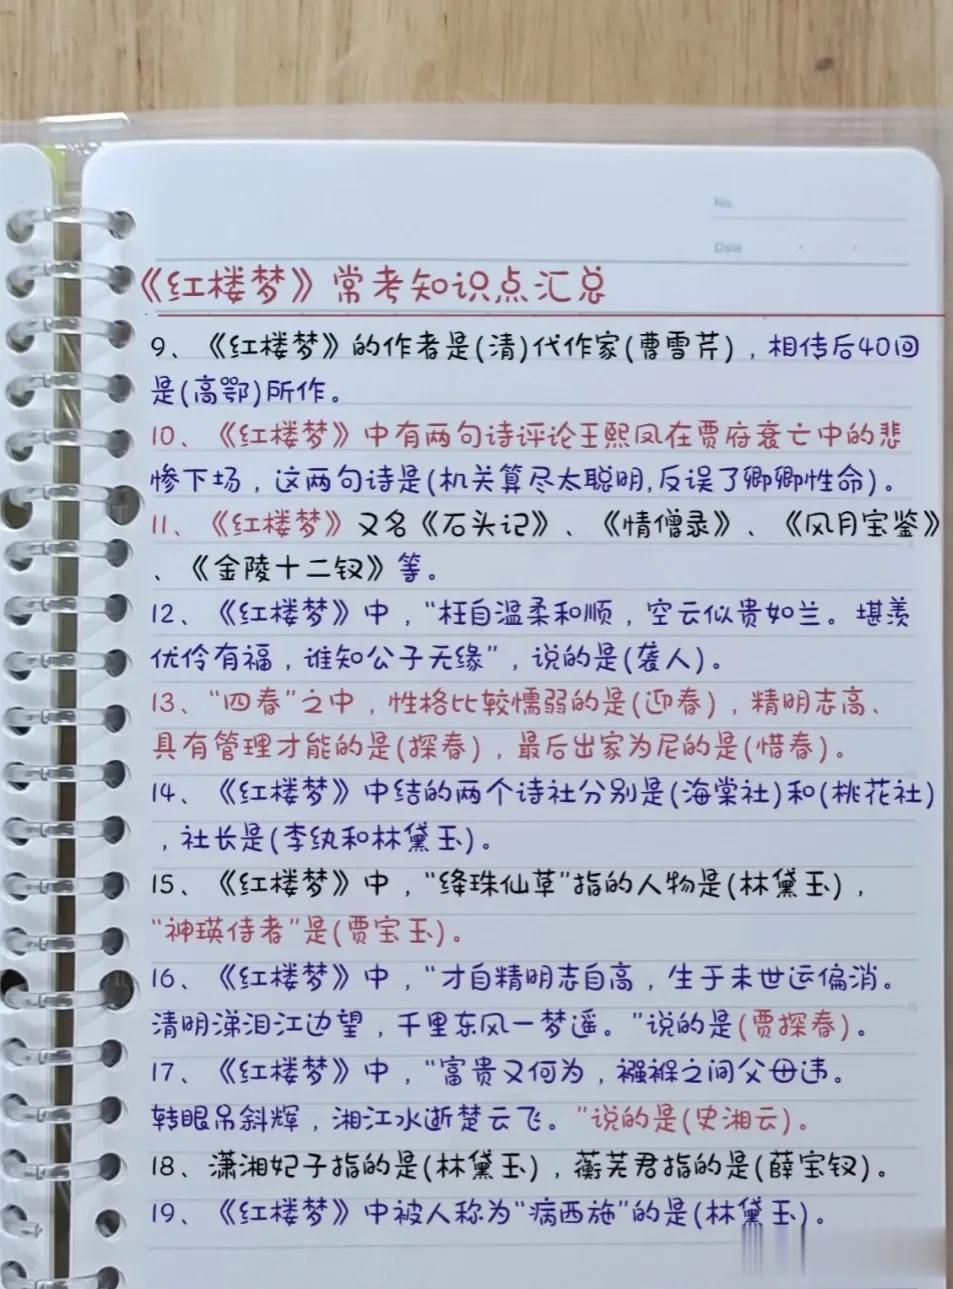 No.
Date
《红楼梦》常考知识点汇总
9、《红楼梦》的作者是(清)代作家(曹雪芹)，相传后40回
是(高鄂)所作。
10、《红楼梦》中有两句诗评论王熙凤在贾府衰亡中的悲
惨下场，这两句诗是(机关算尽太聪明,反误了卿卿性命)。
11、《红楼梦》又名《石头记》、《情僧录》、《风月宝鉴》
、《金陵十二钗》等。
12、《红楼梦》中，“枉自温柔和顺，空云似贵如兰。堪羡
优伶有福，谁知公子无缘”，说的是(袭人)。
13、“四春”之中，性格比较懦弱的是(迎春)，精明志高、
具有管理才能的是(探春)，最后出家为尼的是(惜春)。
14、《红楼梦》中结的两个诗社分别是(海棠社)和(桃花社)
，社长是(李纨和林黛玉)。
15、《红楼梦》中，“绛珠仙草”指的人物是(林黛玉)，
“神瑛侍者”是(贾宝玉)。
16、《红楼梦》中，“才自精明志自高，生于未世运偏消。
清明涕泪江边望，千里东风一梦遥。”说的是(贾探春)。
17、《红楼梦》中，“富贵又何为，襁褓之间父母违。
转眼吊斜辉，湘江水逝楚云飞。”说的是(史湘云)。
18、潇湘妃子指的是(林黛玉)，蘅芜君指的是(薛宝钗)。
19、《红楼梦》中被人称为“病西施”的是(林黛玉)。